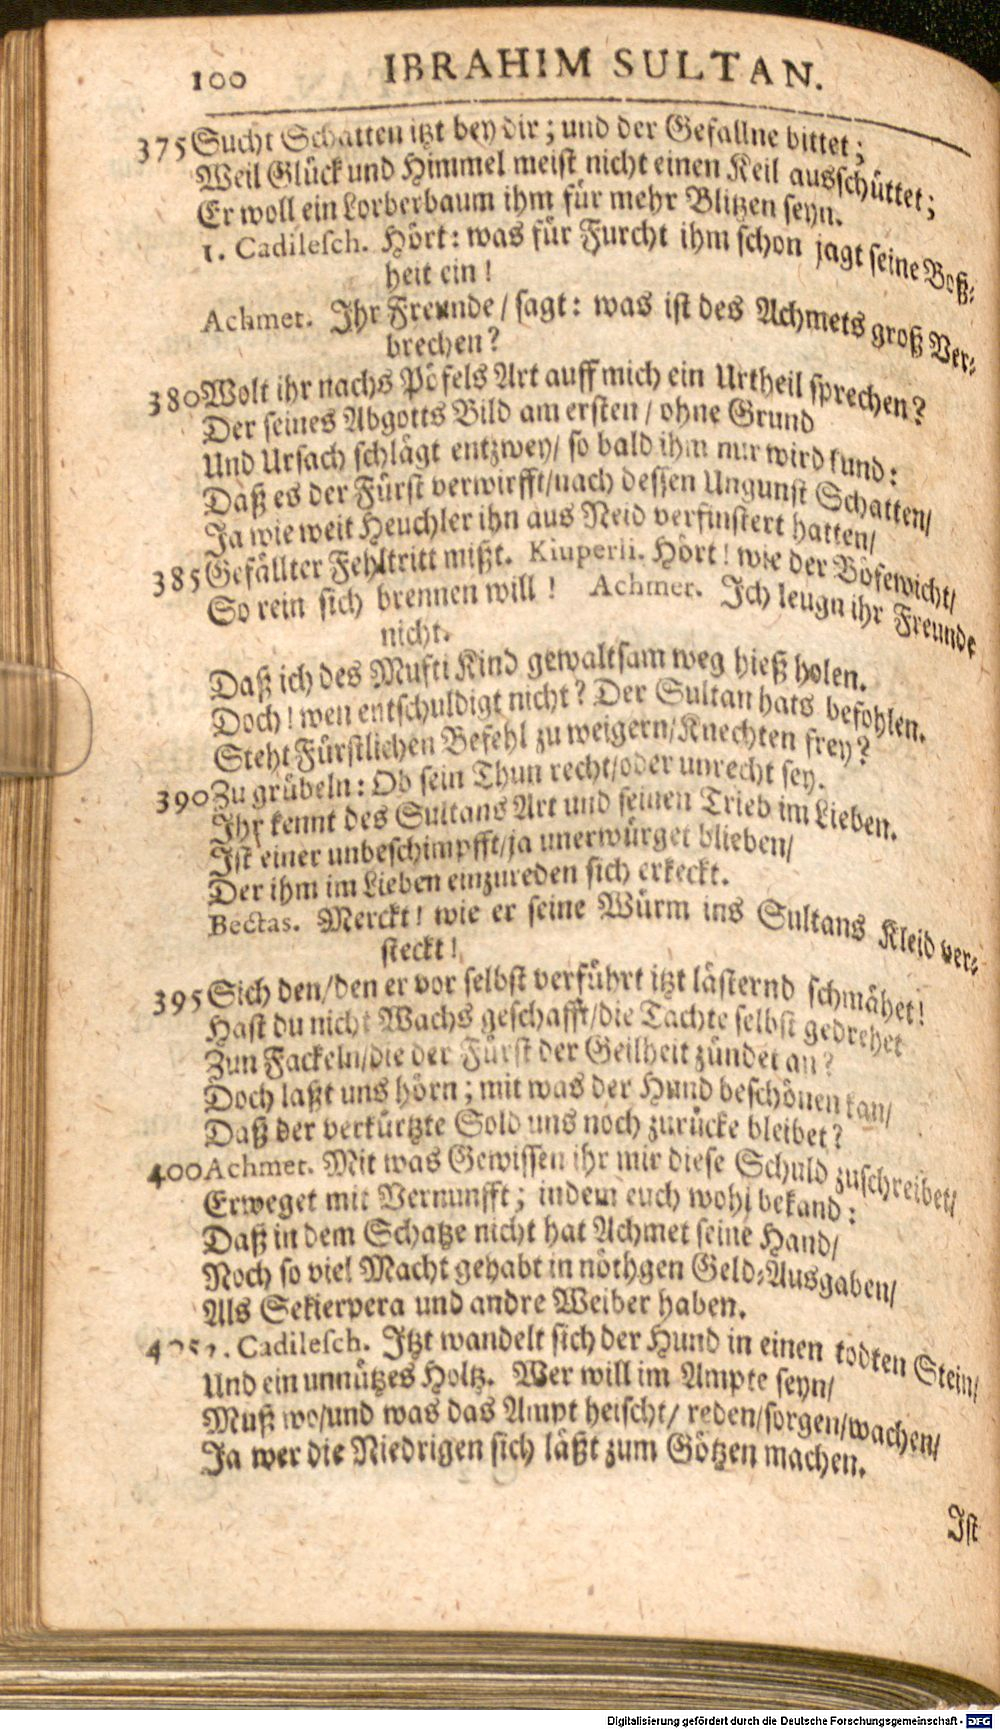 100 IBRAHIM SULTAN.
375 Sucht Schatten itzt bey dir; und der Gefallne bittet;
Weil Glück und Himmel meist nicht einen Keil ausschüttet;
Er woll ein Lorberbaum ihm für mehr Blitzen seyn.
1. Cadilesch. Hört: was für Furcht ihm schon jagt seine Boß-
heit ein!
Achmet. Ihr Freunde/ sagt: was ist des Achmets groß Ver-
brechen?
380 Wolt ihr nachs Pöfels Art auff mich ein Urtheil sprechen?
Der seines Abgotts Bild am ersten/ ohne Grund
Und Ursach schlägt entzwey/ so bald ihm nur wird kund:
Daß es der Fürst verwirfft/nach dessen Ungunst Schatten/
Ja wie weit Heuchler ihn aus Neid verfinstert hatten/
385 Gefällter Fehltritt mißt. Kiuperli. Hört! wie der Bösewicht/
So rein sich brennen will! Achmet. Ich leugn ihr Freunde
nicht.
Daß ich des Mufti Kind gewaltsam weg hieß holen.
Doch! wen entschuldigt nicht? Der Sultan hats befohlen.
Steht Fürstlichen Befehl zu weigern/Knechten frey?
390 Zu grübeln: Ob sein Thun recht/oder unrecht sey.
Ihr kennt des Sultans Art und seinen Trieb im Lieben.
Ist einer unbeschimpfft/ja unerwürget blieben/
Der ihm im Lieben einzureden sich erkeckt.
Bectas. Merckt! wie er seine Würm ins Sultans Kleid ver-
steckt!
395 Sich den/den er vor selbst verführt itzt lästernd schmähet!
Hast du nicht Wachs geschafft/die Tachte selbst gedrehet
Zun Fackeln/die der Fürst der Geilheit zündet an?
Doch laßt uns hörn; mit was der Hund beschönen kan/
Daß der verkürtzte Sold uns noch zurücke bleibet?
400 Achmet. Mit was Gewissen ihr mir diese Schuld zuschreibet/
Erweget mit Vernunfft; indem euch wohl bekand:
Daß in dem Schatze nicht hat Achmet seine Hand/
Noch so viel Macht gehabt in nöthgen Geld-Ausgaben/
Als Sekierpera und andre Weiber haben.
405 1. Cadilesch. Itzt wandelt sich der Hund in einen todten Stein/
Und ein unnützes Holtz. Wer will im Ampte seyn/
Muß wo/und was das Ampt heischt/ reden/sorgen/wachen/
Ja wer die Niedrigen sich läßt zum Götzen machen.
Ist
Digitalisierung gefördert durch die Deutsche Forschungsgemeinschaft - DFG